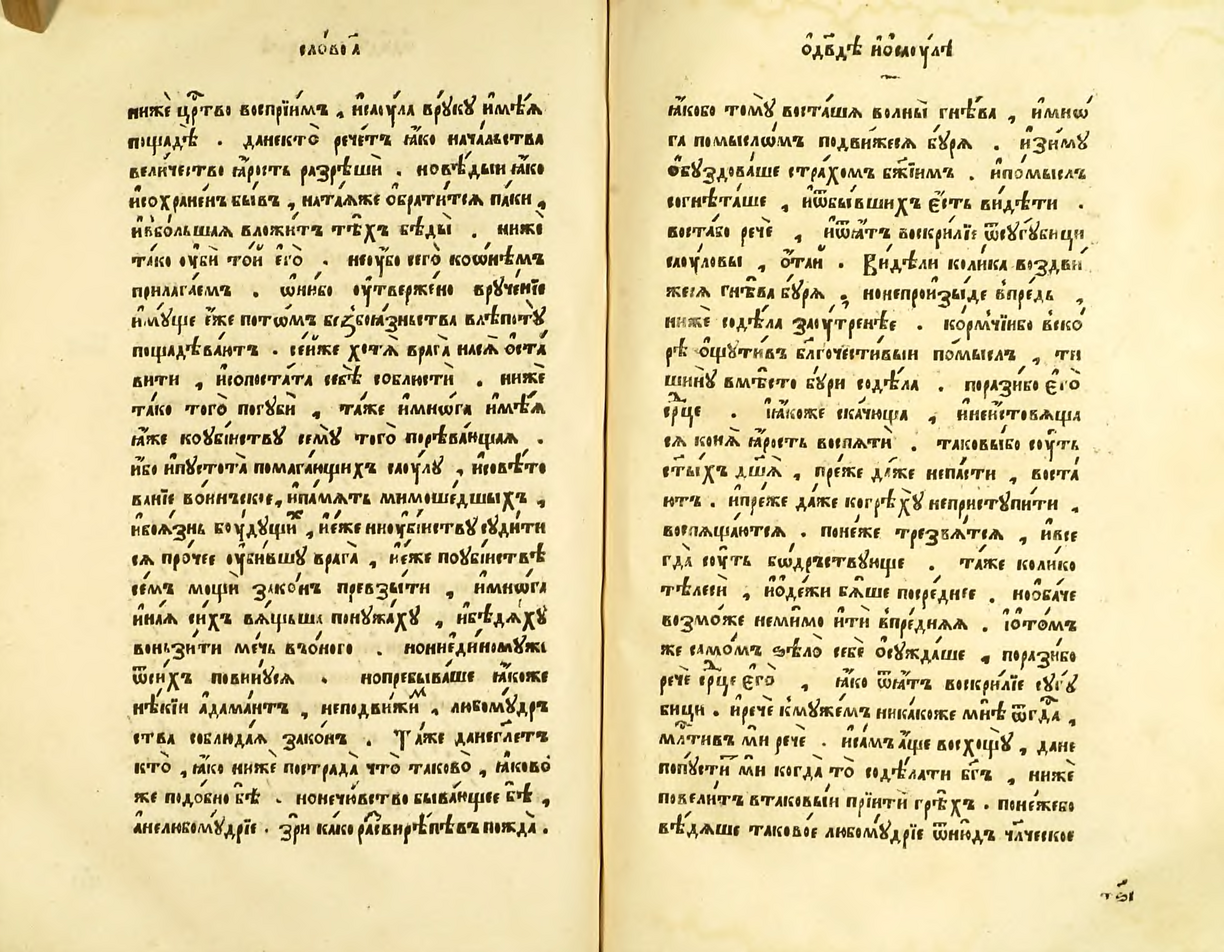 сло́во а҃
ниже црⷭ҇тво воспрїи́мъ , и҆саоу́ла врꙋ́кꙋ и҆мѣ́ѧ
пощадѣ̀ . данектѡ̀ рече́тъ ꙗ҆́ко нача́льства
вели́чество ꙗ҆́рость разрѣшѝ . новѣ́дыи ꙗ҆́ко
и҆сохране́нъ бы́въ , ната́ѧже ѻ҆брати́тсѧ па́ки ,
и҆вбо́льшаѧ вложи́тъ тѣ́хъ бѣ́ды̀ . нижѐ
та́ко оу҆бѝ то́й є҆го̀ . неоу҆бо сего̀ коѻнѣ́мъ
прилага́емъ . ѻ҆нибо оу҆твержено врꙋче́нїе
и҆мꙋ́ще є҆́же пото́мъ безбоѧ́зньства влѣ́потꙋ
пощадѣва́ютъ . се́йже хотѧ̀ врага̀ насѧ̀ ѻ҆ста́
вити , и҆сопоста́та себѣ̀ соблюстѝ . нижѐ
та́ко того̀ погꙋбѝ , та́же и҆мнѡ́га и҆мѣ́ѧ
ꙗ҆́же коубі́йствꙋ семꙋ̀ того̀ порѣва́ющаѧ .
и҆́бо и҆пꙋстота̀ помага́ющихъ саоу́лꙋ , и҆совѣ́то
ванїе во́иньское, и҆па́мѧть мимоше́дшыхъ ,
и҆боѧ́знь боу́дꙋщиⷯ , и҆е́же ниоу҆бі́йствꙋ сꙋди́ти
сѧ про́чее оу҆би́вшꙋ врага̀ , и҆е́же поубі́йствѣ
се́мъ мо́щи зако́нъ превзы́ти , и҆мнѡ́га
и҆на́ѧ си́хъ вѧ́щьша понꙋжа́хꙋ , и҆бѣдѧ́хꙋ
воньзи́ти ме́чь въо́ного . нониеди́номꙋже
ѿси́хъ повинꙋ́сѧ . нопребыва́ше ꙗ҆́коже
нѣ́кїи а҆дама́нтъ , неподви́жиⷨ , любомꙋ́дръ
ства соблюда́ѧ зако́нъ . Та́же данегл҃етъ
кто̀ , ꙗ҆́ко ниже пострада̀ что̀ таково̀ , ꙗ҆ково́
же подо́бно бѣ̀ . нонечю́вство быва́ющее бѣ̀ ,
а҆нелюбомꙋ́дрїе . зрѝ ка́ко расвирѣ́пѣвъ пожда̀ .
ѻ҆дв҃дѣ и҆ѻ҆саоу́лѣ
ꙗ҆́кобо томꙋ̀ воста́шѧ во́лны̀ гнѣ́ва , и҆мнѡ́
га помысло́мъ подви́жесѧ бꙋ́рѧ . и҆зи́мꙋ
ѻ҆бꙋздова́ше стра́хомъ бж҃їимъ . и҆по́мыслъ
согнѣта́ше , и҆ѿбы́вшихъ є҆́сть ви́дѣти .
воста́бо речѐ , и҆ѿѧ́тъ воскри́лїе ѿсꙋгꙋ́бици
саоу́ловы , ѻ҆́тай . Ви́дѣли коли́ка воздви́
жесѧ гнѣ́ва бꙋ́рѧ , нонепроизы́де впре́дь ,
ниже содѣ́ла заоу́тренѣе . ко́рмчїибо вско́
рѣ ѻ҆щꙋти́въ бл҃гочести́выи по́мыслъ , ти
шинꙋ̀ вмѣ́сто бꙋ́ри содѣ́ла . порази́бо є҆го̀
срⷣце . ꙗ҆́коже ска́чюща , и҆неи́стовѧща
сѧ конѧ̀ ꙗ҆́рость воспѧтѝ . таковы́бо соу́ть
ст҃ы́хъ дш҃ѧ , пре́же да́же непа́сти , воста
ю́тъ . и҆пре́же да́же когрѣхꙋ̀ непристꙋпи́ти ,
воспѧща́ютсѧ . поне́же трезвѧ́тсѧ , и҆все
гда̀ соу́ть бѡ́дръствꙋюще . та́же коли́ко
тѣлесѝ , и҆ѻ҆де́жи бѧ́ше посре́днее . нооба́че
возмо́же неми́мо и҆тѝ впре́днѧѧ . і҆ѻ҆то́мъ
же само́мъ ѕѣло̀ себѐ ѻ҆сꙋжда́ше , порази́бо
речѐ срⷣце є҆го̀ , ꙗ҆́ко ѿѧ́тъ воскри́лїе сꙋгꙋ́
бици . и҆речѐ кмꙋ́жемъ ника́коже мнѣ̀ ѿгⷣа ,
млⷭ҇тивъ мѝ речѐ . и҆са́мъ а҆́ще восхощꙋ̀ , дане
попꙋ́стѝ мѝ когда̀ то̀ содѣ́лати бг҃ъ , нижѐ
повели́тъ втаковы́и прїитѝ грѣ́хъ . поне́жебо
вѣ́дѧше таково́е любомꙋ́дрїе ѿню́дъ чл҃ческое